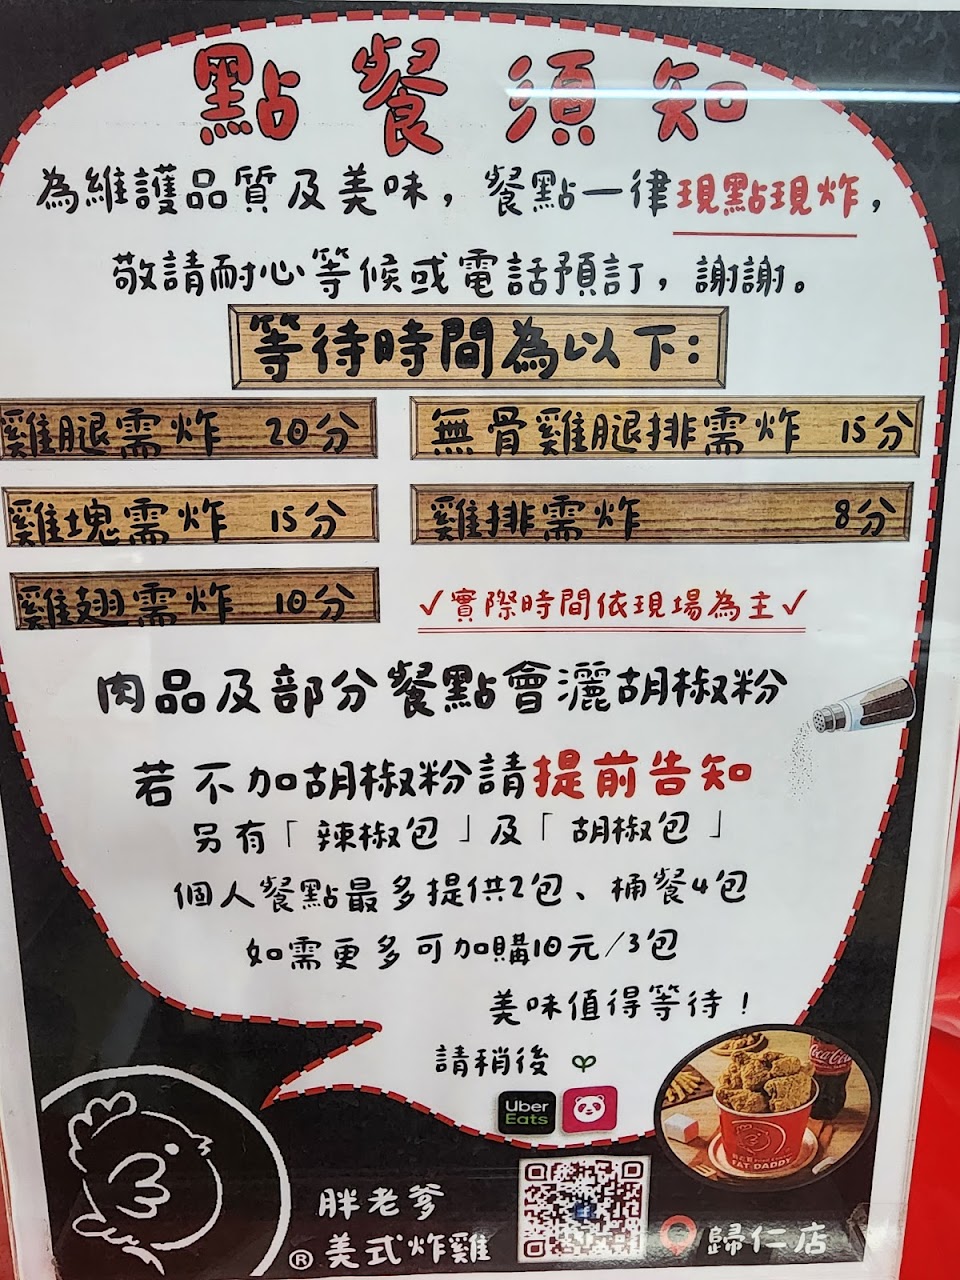 點餐須知
為維護品質及美味，餐點一律現點現炸，
敬請耐心等候或電話預訂，謝謝。
等待時間為以下：
雞腿需炸 20分
無骨雞腿排需炸 15分
雞塊需炸 15分
雞排需炸 8分
雞翅需炸 10分
✓實際時間依現場為主✓
肉品及部分餐點會灑胡椒粉
若不加胡椒粉請提前告知
另有「辣椒包」及「胡椒包」
個人餐點最多提供2包、桶餐4包
如需更多可加購10元/3包
美味值得等待！
請稍後
Uber
Eats
Coca-Cola
FAT DADDY
胖老爹
®美式炸雞
歸仁店